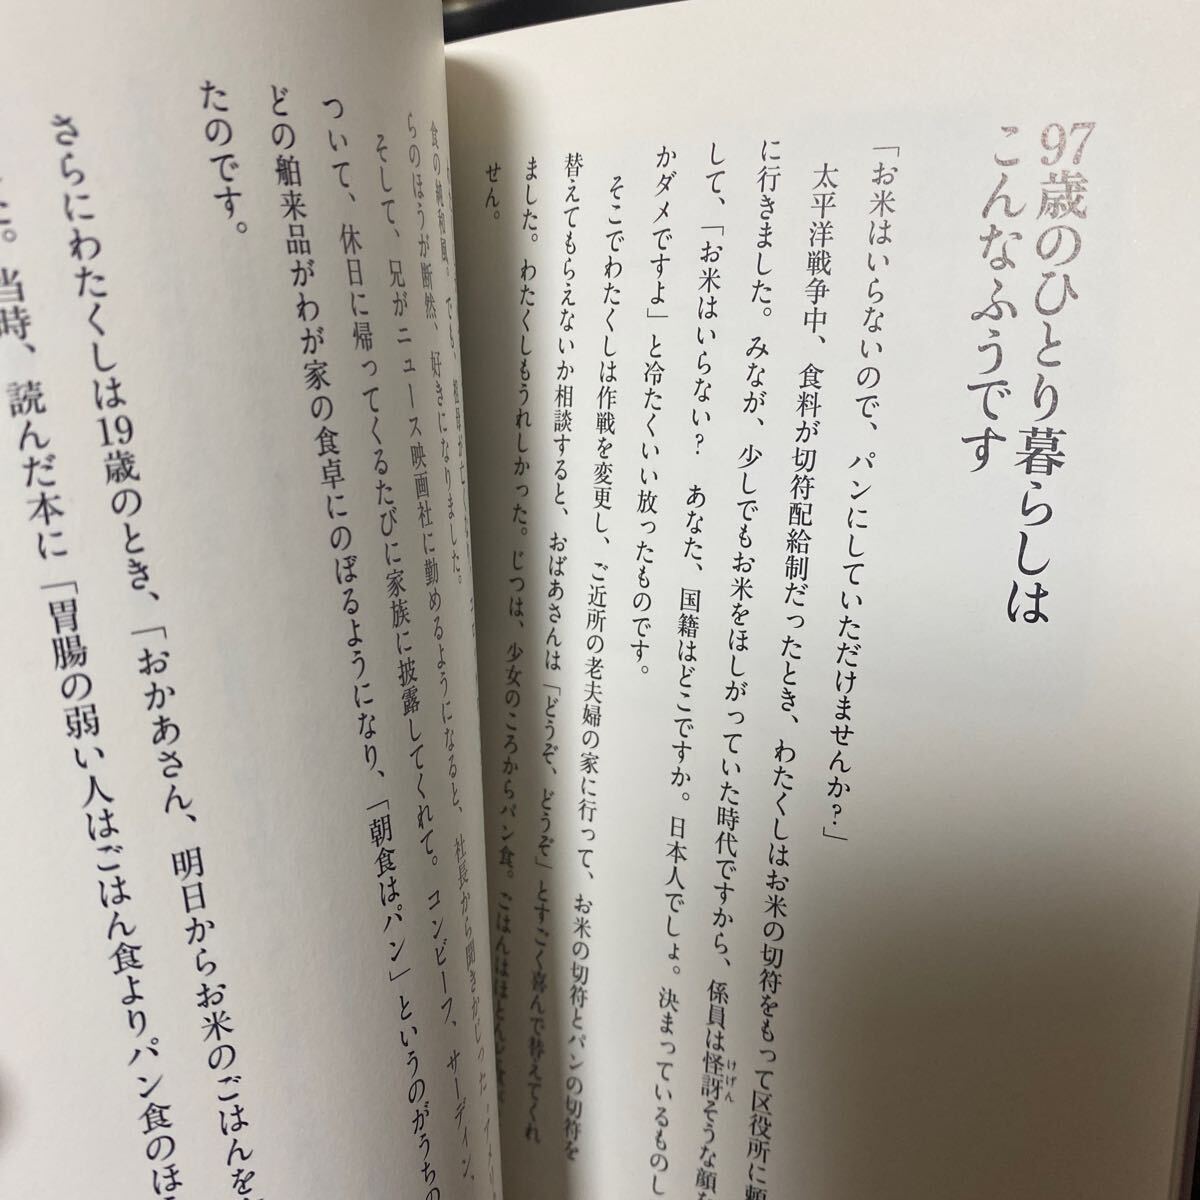 97歳のひとり暮らしは
こんなふうです
「お米はいらないので、パンにしていただけませんか?」
太平洋戦争中、食料が切符配給制だったとき、わたくしはお米の切符をもって区役所に頼
に行きました。みなが、少しでもお米をほしがっていた時代ですから、係員は怪訝そうな顔を
けげん
して、「お米はいらない? あなた、国籍はどこですか。日本人でしょ。決まっているものし
かダメですよ」と冷たくいい放ったものです。
そこでわたくしは作戦を変更し、ご近所の老夫婦の家に行って、お米の切符とパンの切符を
替えてもらえないか相談すると、おばあさんは「どうぞ、どうぞ」とすごく喜んで替えてくれ
ました。わたくしもうれしかった。じつは、少女のころからパン食。ごはんはほとんど
せん。
食の純和風。でも、祖母が亡くなり
らのほうが断然、好きになりました。
そして、兄がニュース映画社に勤めるようになると、社長から聞きかじった
ついて、休日に帰ってくるたびに家族に披露してくれて。コンビーフ、サーディン、
どの舶来品がわが家の食卓にのぼるようになり、「朝食はパン」というのがうちの
たのです。
さらにわたくしは19歳のとき、「おかあさん、明日からお米のごはんを
した。当時、読んだ本に「胃腸の弱い人はごはん食よりパン食のほ